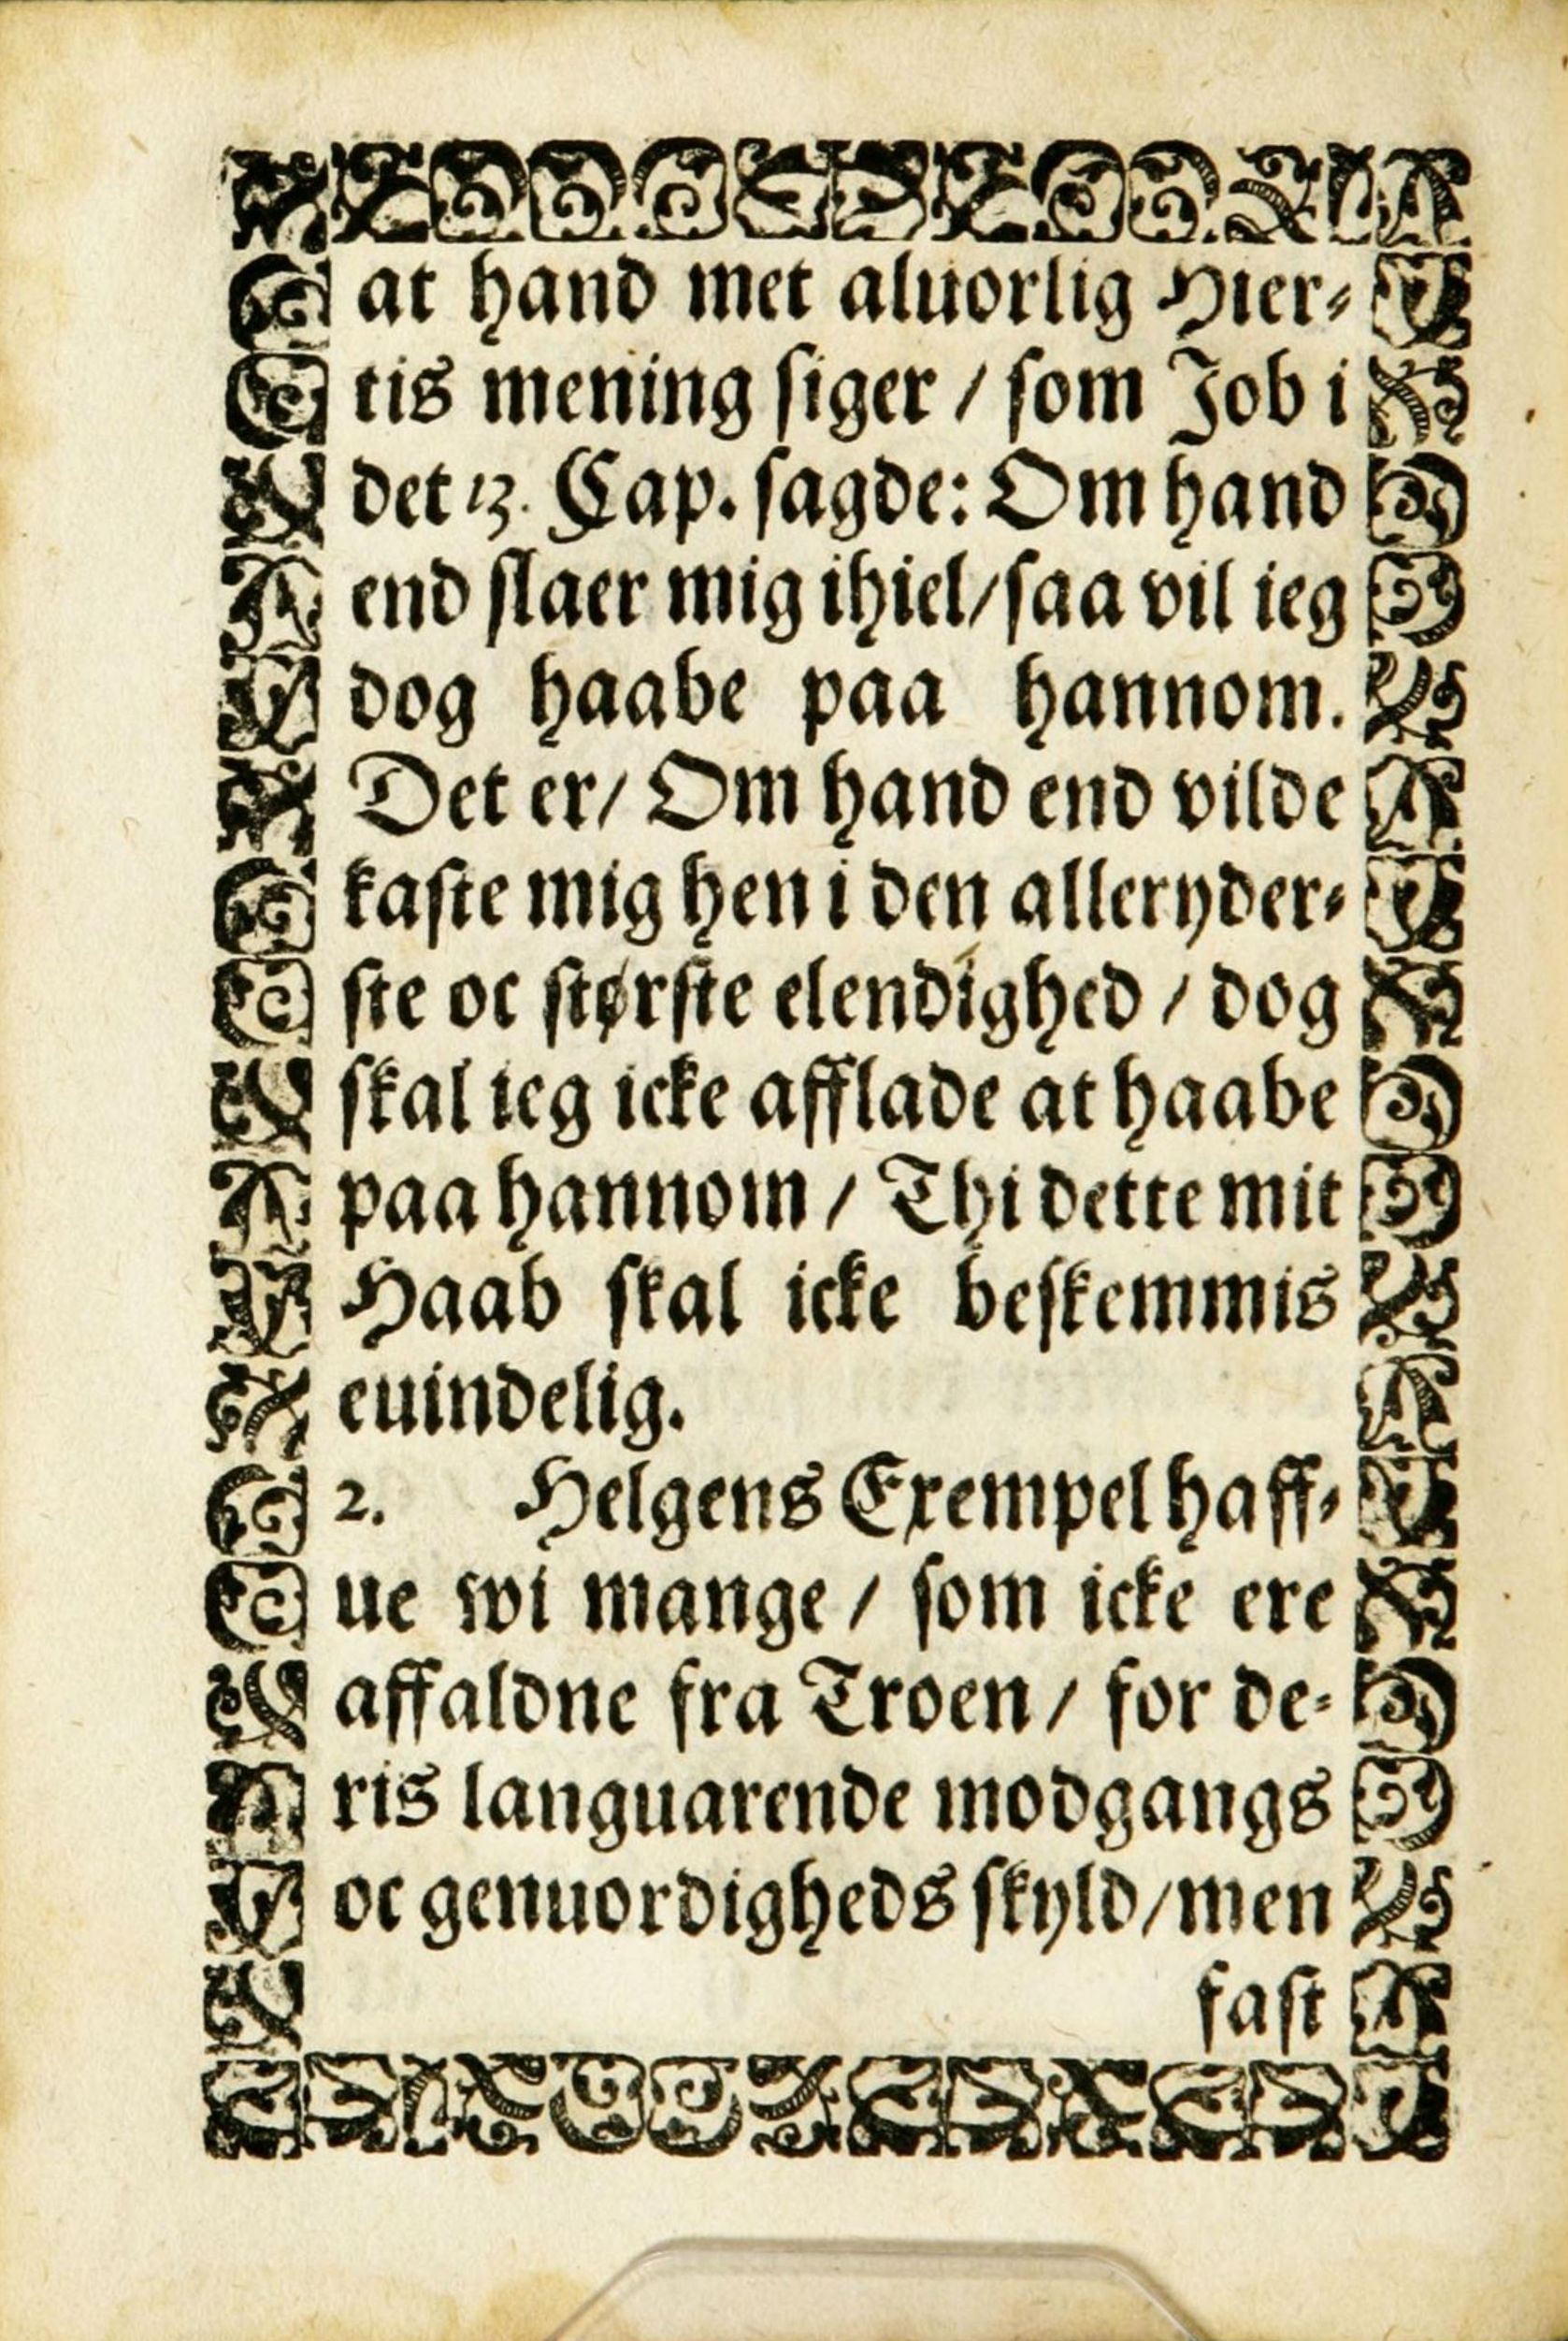 at hand met aluorlig Hier⸗
tis mening siger / som Job i
det 13. Cap. sagde: Om hand
end slaer mig ihiel/saa vil ieg
dog haabe paa hannom.
Det er/ Om hand end vilde
kaste mig hen i den alleryder⸗
ste oc største elendighed / dog
skal ieg icke afflade at haabe
paa hannom / Thi dette mit
Haab skal icke beskemmis
euindelig.
2. Helgens Exempel haff⸗
ue wi mange / som icke ere
affaldne fra Troen / for de⸗
ris languarende modgangs
oc genuordigheds skyld/men
fast